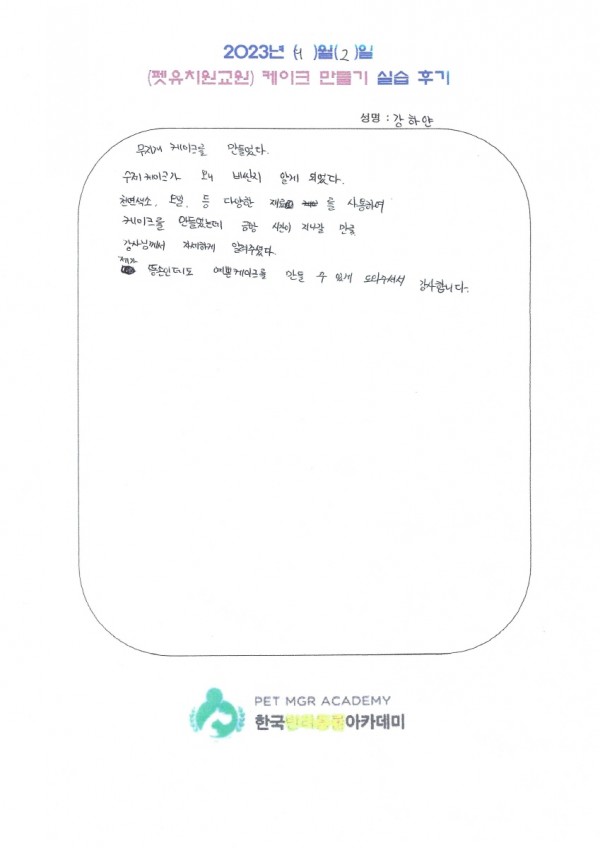 2023년 (11)월(2)일
(펫유치원교원) 케이크 만들기 실습 후기
성명 : 강하얀
무지개 케이크를 만들었다.
수제케이크가 왜 비싼지 알게 되었다.
천연색소, 오닐, 등 다양한 재료를 사용하여
케이크를 만들었는데 금방 시간이 지나갈 만큼
강사님께서 자세하게 알려주셨다.
제가 똥손인데도 예쁜케이크를 만들 수 있게 도와주셔서 감사합니다.
PET MGR ACADEMY
한국반려동물아카데미